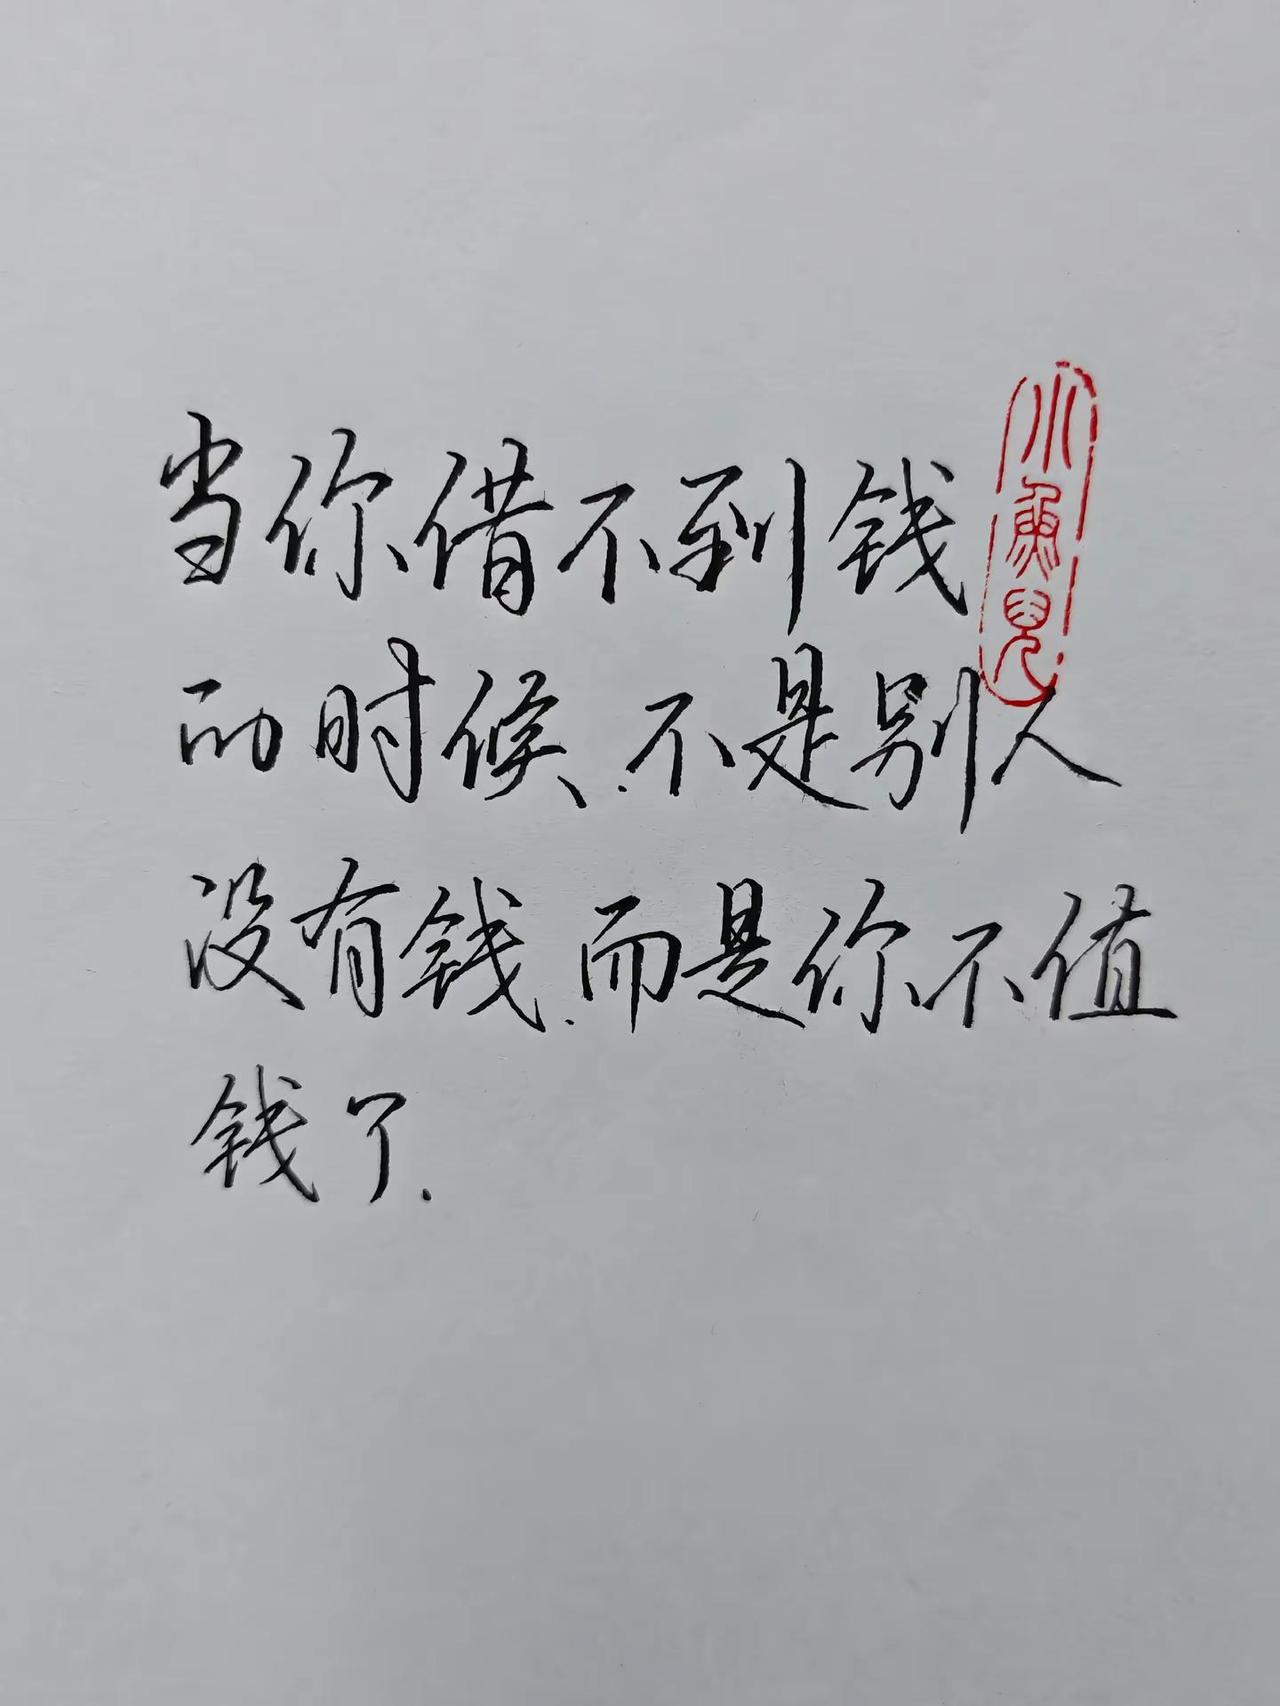 当你借不到钱
的时候.不是别人
没有钱.而是你不值
钱了.
小鱼儿